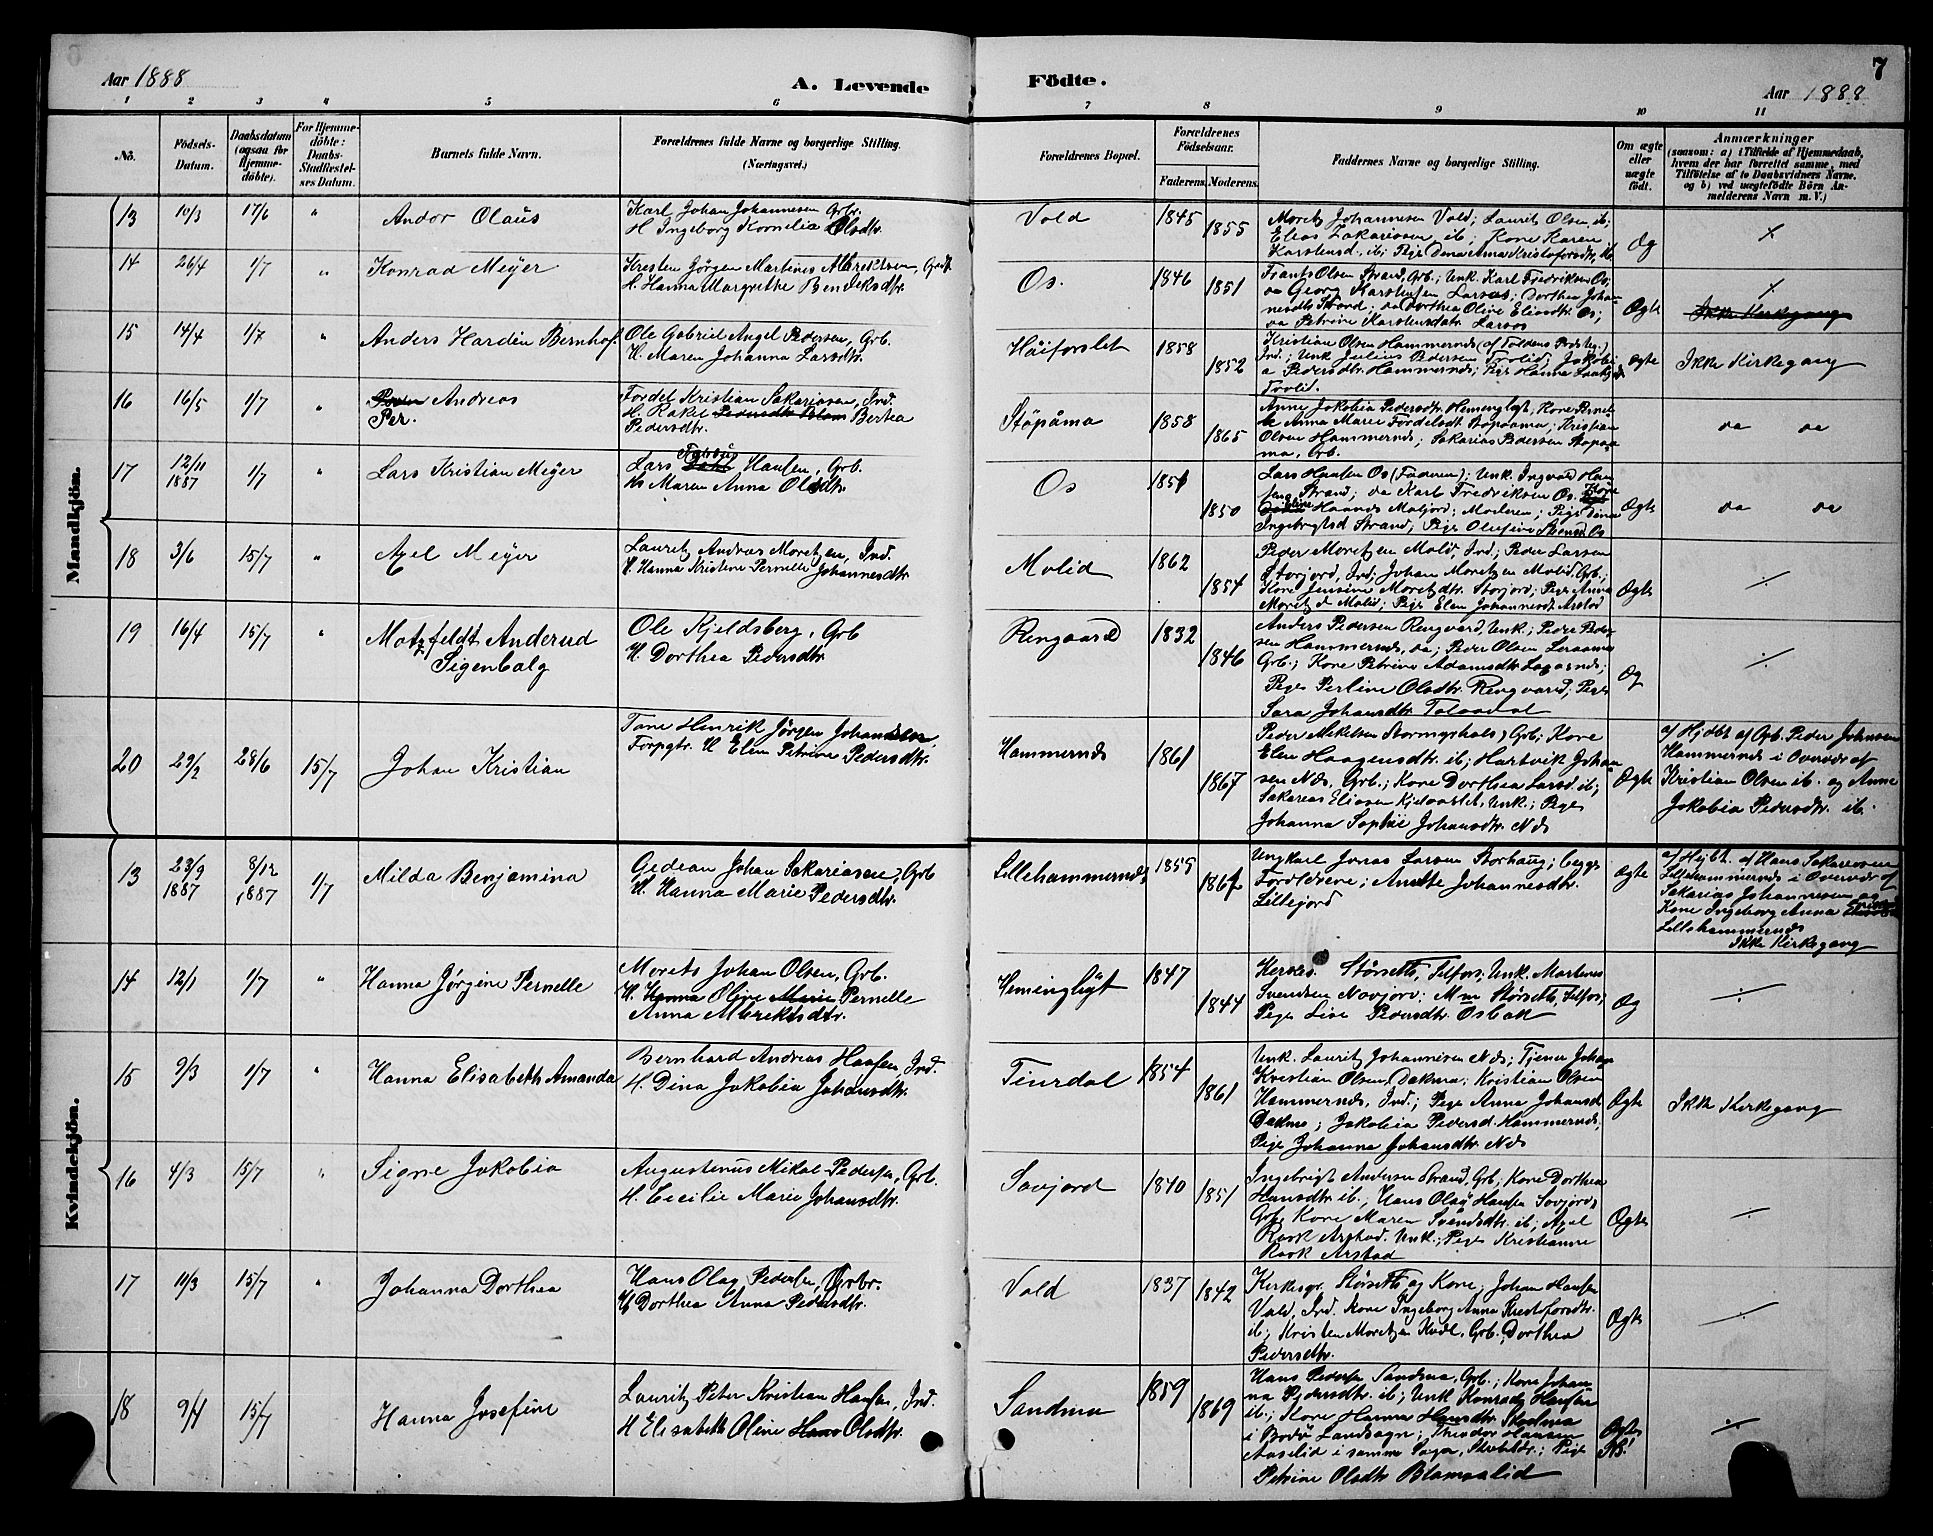 Aar 1888
A. Levende
Födte.
7
Aar 1888
1 2 3 4 5 6 7 8 9 10 11
No.
Födsels-
Datum.
Daabsdatum
(ogsaa for
Hjemme-
döbte).
For Hjemme-
döbte:
Daabs-
Stadfæstel-
ses Datum.
Barnets fulde Navn.
Forældrenes fulde Navne og borgerlige Stilling.
(Næringsvei.)
Forældrenes Bopæl.
Forældrenes
Födselsaar.
Faderens.
Moderens.
Faddernes Navne og borgerlige Stilling.
Om ægte
eller
uægte
födt.
Anmærkninger
(saasom: a) i Tilfælde af Hjemmedaab,
hvem der har forrettet samme, med
Tilföielse af to Daabsvidners Navne.
og b) ved uægtefödte Börn An-
melderens Navn m. V.)
Mandkjön.
13 10/3 17/6 " Andor Olaus
Karl Johan Johannesen Grbr.
H. Ingeborg Kornelia Olsdtr.
Vold 1845 1855
Moritz Johannesen Vold; Lauritz Olsen ib;
Elias Zakariassen ib; Kone Karen
Karstensd. ib; Pige Dina Anna Kristofersdtr, ib.
Æg
14 26/4 1/7 " Konrad Meyer
Kresten Jörgen Martines
H. Hanna Margrethe Bendiksdtr.
Os. 1846 1851
Frants Olsen Strand, Grb.; Unk. Karl Fredriksen Os;
Georg Karstensen Larsos; Dorthea Johan-
nesdtr Strand; Dorthea Olive Eliasdtr Os;
Petrine Karstensdtr. Larsos
Ægte
Ikke Kirkegang
15 14/4 1/7 " Anders Hardin Bernhof
Ole Gabriel Angel Pedersen, Grb.
H. Maren Johanna Larsdtr.
Höiforslet 1858 1852
Kristian Olsen Hammernes
Ind.; Unk Julius Pedersen Trolid; Jakobi-
a Pedersdtr. Hammernes; Pige Hanna
Trolid.
Ægte
Ikke Kirkegang
16 16/5 1/7 " Peder Andreas
Per.
Fordel Kristian Sakariasen, Ind.
H. Rakel Pedersdtr Bertea
Pedersdtr.
Stöpåma 1858 1865
Anne Jokobia Pedersdtr. Hemingligt, Kone Pernel-
le Anna Marie Fordelsdt Stöpaama; Kristian
Olsen Hammernes; Sakarias Pedersen Stöpaa-
ma, Grb.
17 12/11
1887 1/7 " Lars Kristian Meyer
Lars Hansen, Grb.
H. Maren Anna Olsdtr.
Os 1851 1850
Lars Hansen Os (Faderen); Unk. Ingvald Han-
sen Strand; Karl Fredriksen Os. Kone
Haands Moljord; Moderen; Pige Dina
Ingebrigtsd Strand; Pige Olufine Os
Ægte
18 3/6 15/7 " Axel Meyer
Lauritz Andreas Moretzen, Ind.
H. Hanna Kristine Pernelle Johannesdtr.
Molid 1862 1854
Peder Moretzen Molid, Ind; Peder Larsen
Storjord, Ind; Johan Moretzen Molid, Grb.;
Kone Jensine Moretzdtr. Storjord; Pige Anna
Moretzd Molid; Pige Elen Johannesdt Arstad
Ægte
19 16/4 15/7 " Motzfeldt Anderud
Sigenbalg
Ole Kjeldsberg, Grb
H. Dorthea Pedersdtr.
Rengaard 1832 1846
Anders Pedersen Rengaard, Unk.; Peder Peder-
sen Hammernes; Peder Olsen
Grb.; Kone Petrine Adamsdtr
Pige Perline Olsdtr. Rengaard; Pige
Sara Johansdtr Tolaadal
Æg
20 29/2 28/6 15/7 Johan Kristian
Tone Henrik Jörgen Johansen,
Forpgtr. H Elen Petrine Pedersdtr.
Hammernes 1861 1867
Peder Mikelsen Stormyrhals, Grb; Kone
Elen Haagensdtr. ib; Hartvik Johan-
sen Nes, Grb.; Kone Dorthea Larsd. ib;
Sakarias Eliasen Unk.; Pige
Johanna Sophie Johansdtr. Nes
Ægte
af Hjdbt. af Grb. Peder Johnsen
Hammernes i Overvær af
Kristian Olsen ib. og Anne
Jokobia Pedersdtr. ib.
Kvindekjön.
13 23/9
1887 8/12
1887 1/7 Milda Benjamina
Gedeon Johan Sakariasen, Grb
H. Hanna Marie Pedersdtr.
Lillehammernes 1855
Ungkarl Jonas Larsen Storhaug; begge
Forældrene; Anette Johannesdtr.
Lillejord
Ægte
af Hjbt. af Hans Sakariasen
Lillehammernes i Overvær af
Sakarias Johannesen og
Kone Ingeborg Anna
Lillehammernes
Ikke Kirkegang
14 12/1 1/7 " Hanna Jörgine Pernelle
Morets Johan Olsen, Grb.
H. Hanna Olive Marie Pernelle
Anna
Hemingligt 1847 1844
Störseth, Unk. Martines
Svendsen Novjord; Störseth,
Pige Lise Pedersdtr. Osbak
Æg
15 9/3 1/7 " Hanna Elisabeth Amanda
Bernhard Andreas Hansen, Ind.
H. Dina Jakobia Johansdtr.
1854 1861
Unk. Lauritz Johannesen Nes; Tjener Johan
Kristian Olsen, Dokmo; Kristian Olsen
Hammernes, Ind.; Pige Anna Johansd
Dokmo; Jakobia Pedersd. Hammernes,
Pige Johanna Johansdtr. Nes
Ægte
Ikke Kirkegang
16 4/3 15/7 " Signe Jakobia
Augustinus Mikal Pedersen, Grb.
H. Cecilie Marie Johansdtr.
Sovjord 1840 1851
Ingebrigt Andersen Strand, Grb; Kone Dorthea
Hansdtr. ib.; Hans Olaij Hansen Sovjord,
Grb, Kone Maren Svendsdtr. ib; Axel
Rask Arstad, Unk.; Pige Kristianne
Rask Arstad
Ægte
17 11/3 15/7 " Johanna Dorthea
Hans Olag Pedersen, Grbr.
H. Dorthea Anna Pedersdtr.
Vold 1837 1842
Kirkesgr. Störseth og Kone; Johan Hansen
Vold, Ind. Kone Ingeborg Anna Kristofersdtr.
ib; Kristen Moretzen Kvæl, Grb. Dorthea
Pedersdtr.
Ægte
18 9/4 15/7 Hanna Josefine
Lauritz Peter Kristian Hansen, Ind.
H Elisabeth Oline Hans Olsdtr.
Sandmo 1859 1869
Hans Pedersen Sandmo, Grb.; Kone Johan-
na Pedersdtr. ib; Unk Konrad Hansen
ib; Kone Hanna Hansdtr.
i Bodö Landsogn; Theodor Hansen
i samme Sogn, Pige
Petrine Olsdtr
Ægte